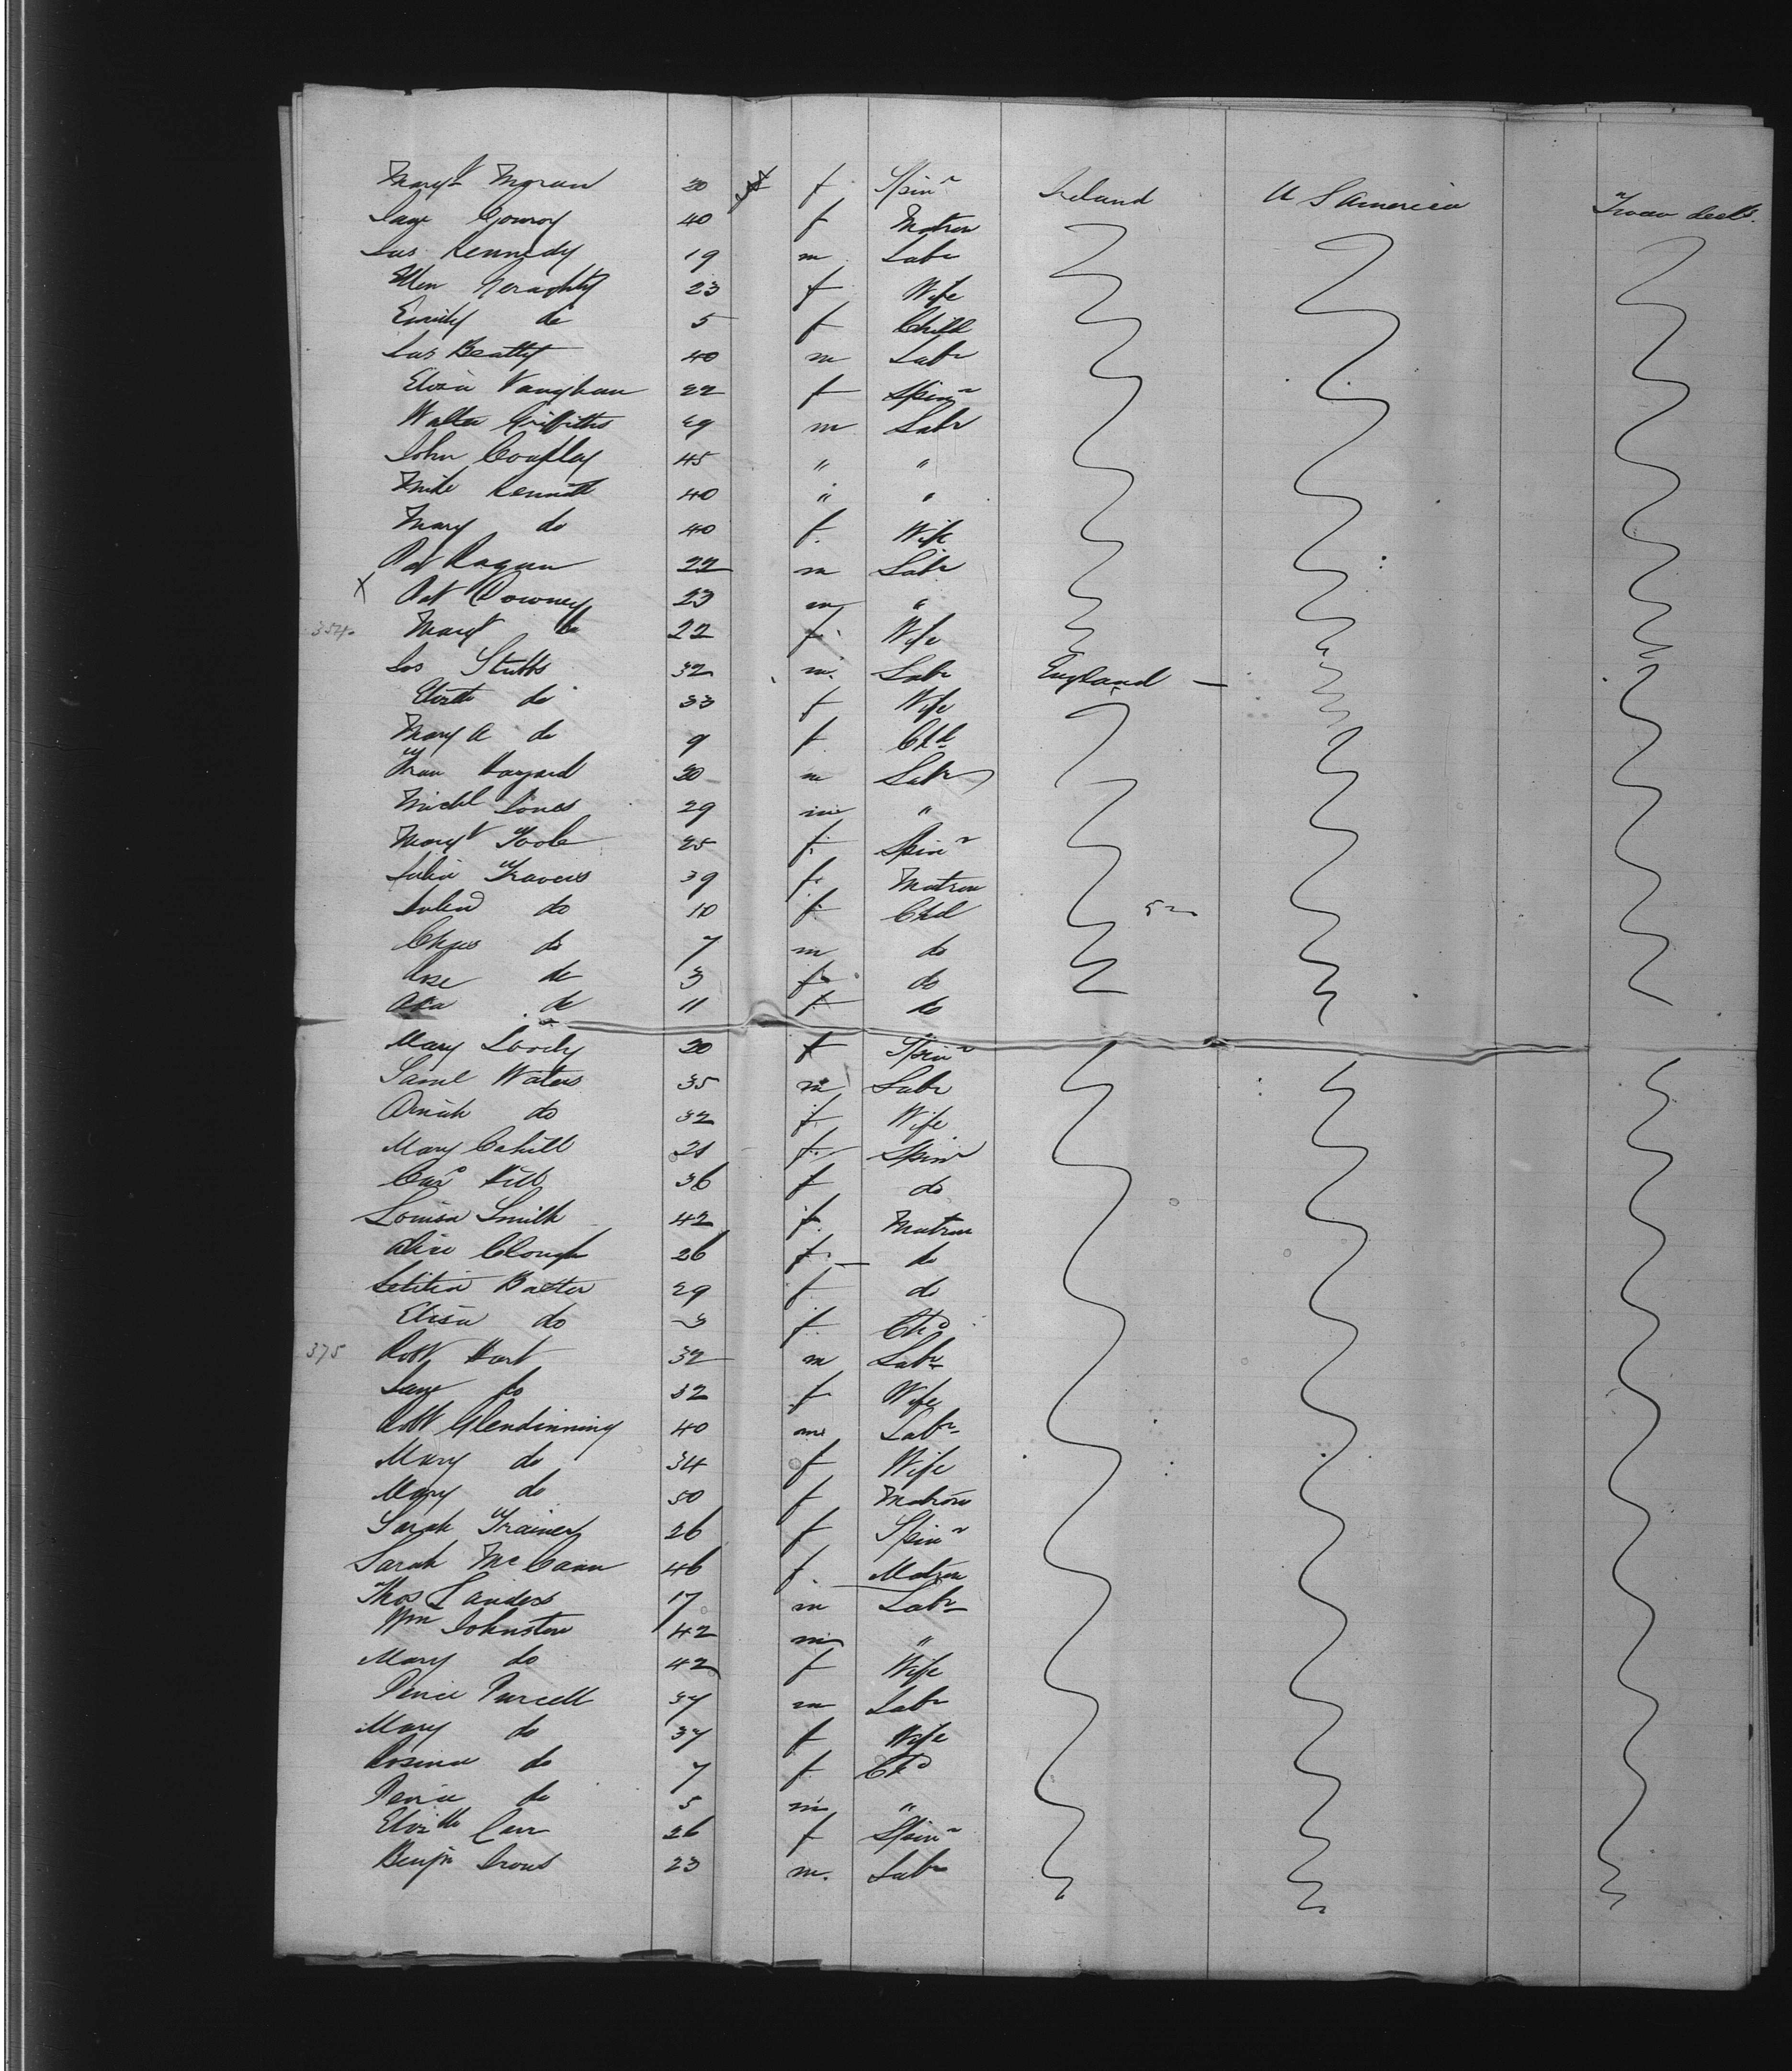 Margt Moran 20 f Spinr Ireland U S America Tween decks
Jane Conroy 40 f Matron
Jas Kennedy 19 m Labr
Ellen Geraghty 23 f Wife
Emily do 5 f Child
Jas Beatty 40 m Labr
Eliza Vaughan 22 f Spinr
Walter Griffiths 29 m Labr
John 45 " "
Mike 40 " "
Mary do 40 f. Wife
Pat Ragan 22 m Labr
X Pat Downey 23 m "
354 Margt do 22 f. Wife
Jos Stubbs 32 m. Labr England —
Elizth do 33 f Wife
Mary A do 9 f Chd
20 m Labr
Michl Jones 29 m "
Margt Toole 25 f. Spinr
Julia Travers 39 f. Matron
Julia do 10 f Chd
Chas do 7 m do
Rose do 3 f do
do 11 f do
Mary 20 f Spinr
Saml Waters 35 m Labr
do 32 f. Wife
Mary Cahill 21 f. Spinr
Hill 36 f do
Louisa Smith 42 f. Matron
Alice Clough 26 f. — do
Letitia Baxter 29 f do
Eliza do 3 f. Chd
375 Robt Hart 32 m Labr
Jane do 32 f Wife
Robt Glendinning 40 m Labr
Mary do 34 f Wife
Mary do 50 f Matron
Sarah Trainer 26 f Spinr
Sarah McCann 46 f. Matron
Thos Sanders 17 m Labr
Wm Johnston 42 m "
Mary do 42 f Wife
Pierce Purcell 37 m Labr
Mary do 37 f Wife
Rosina do 7 f Chd
Pierce do 5 m "
Elizth Carr 26 f Spinr
Benjn Irons 23 m. Labr